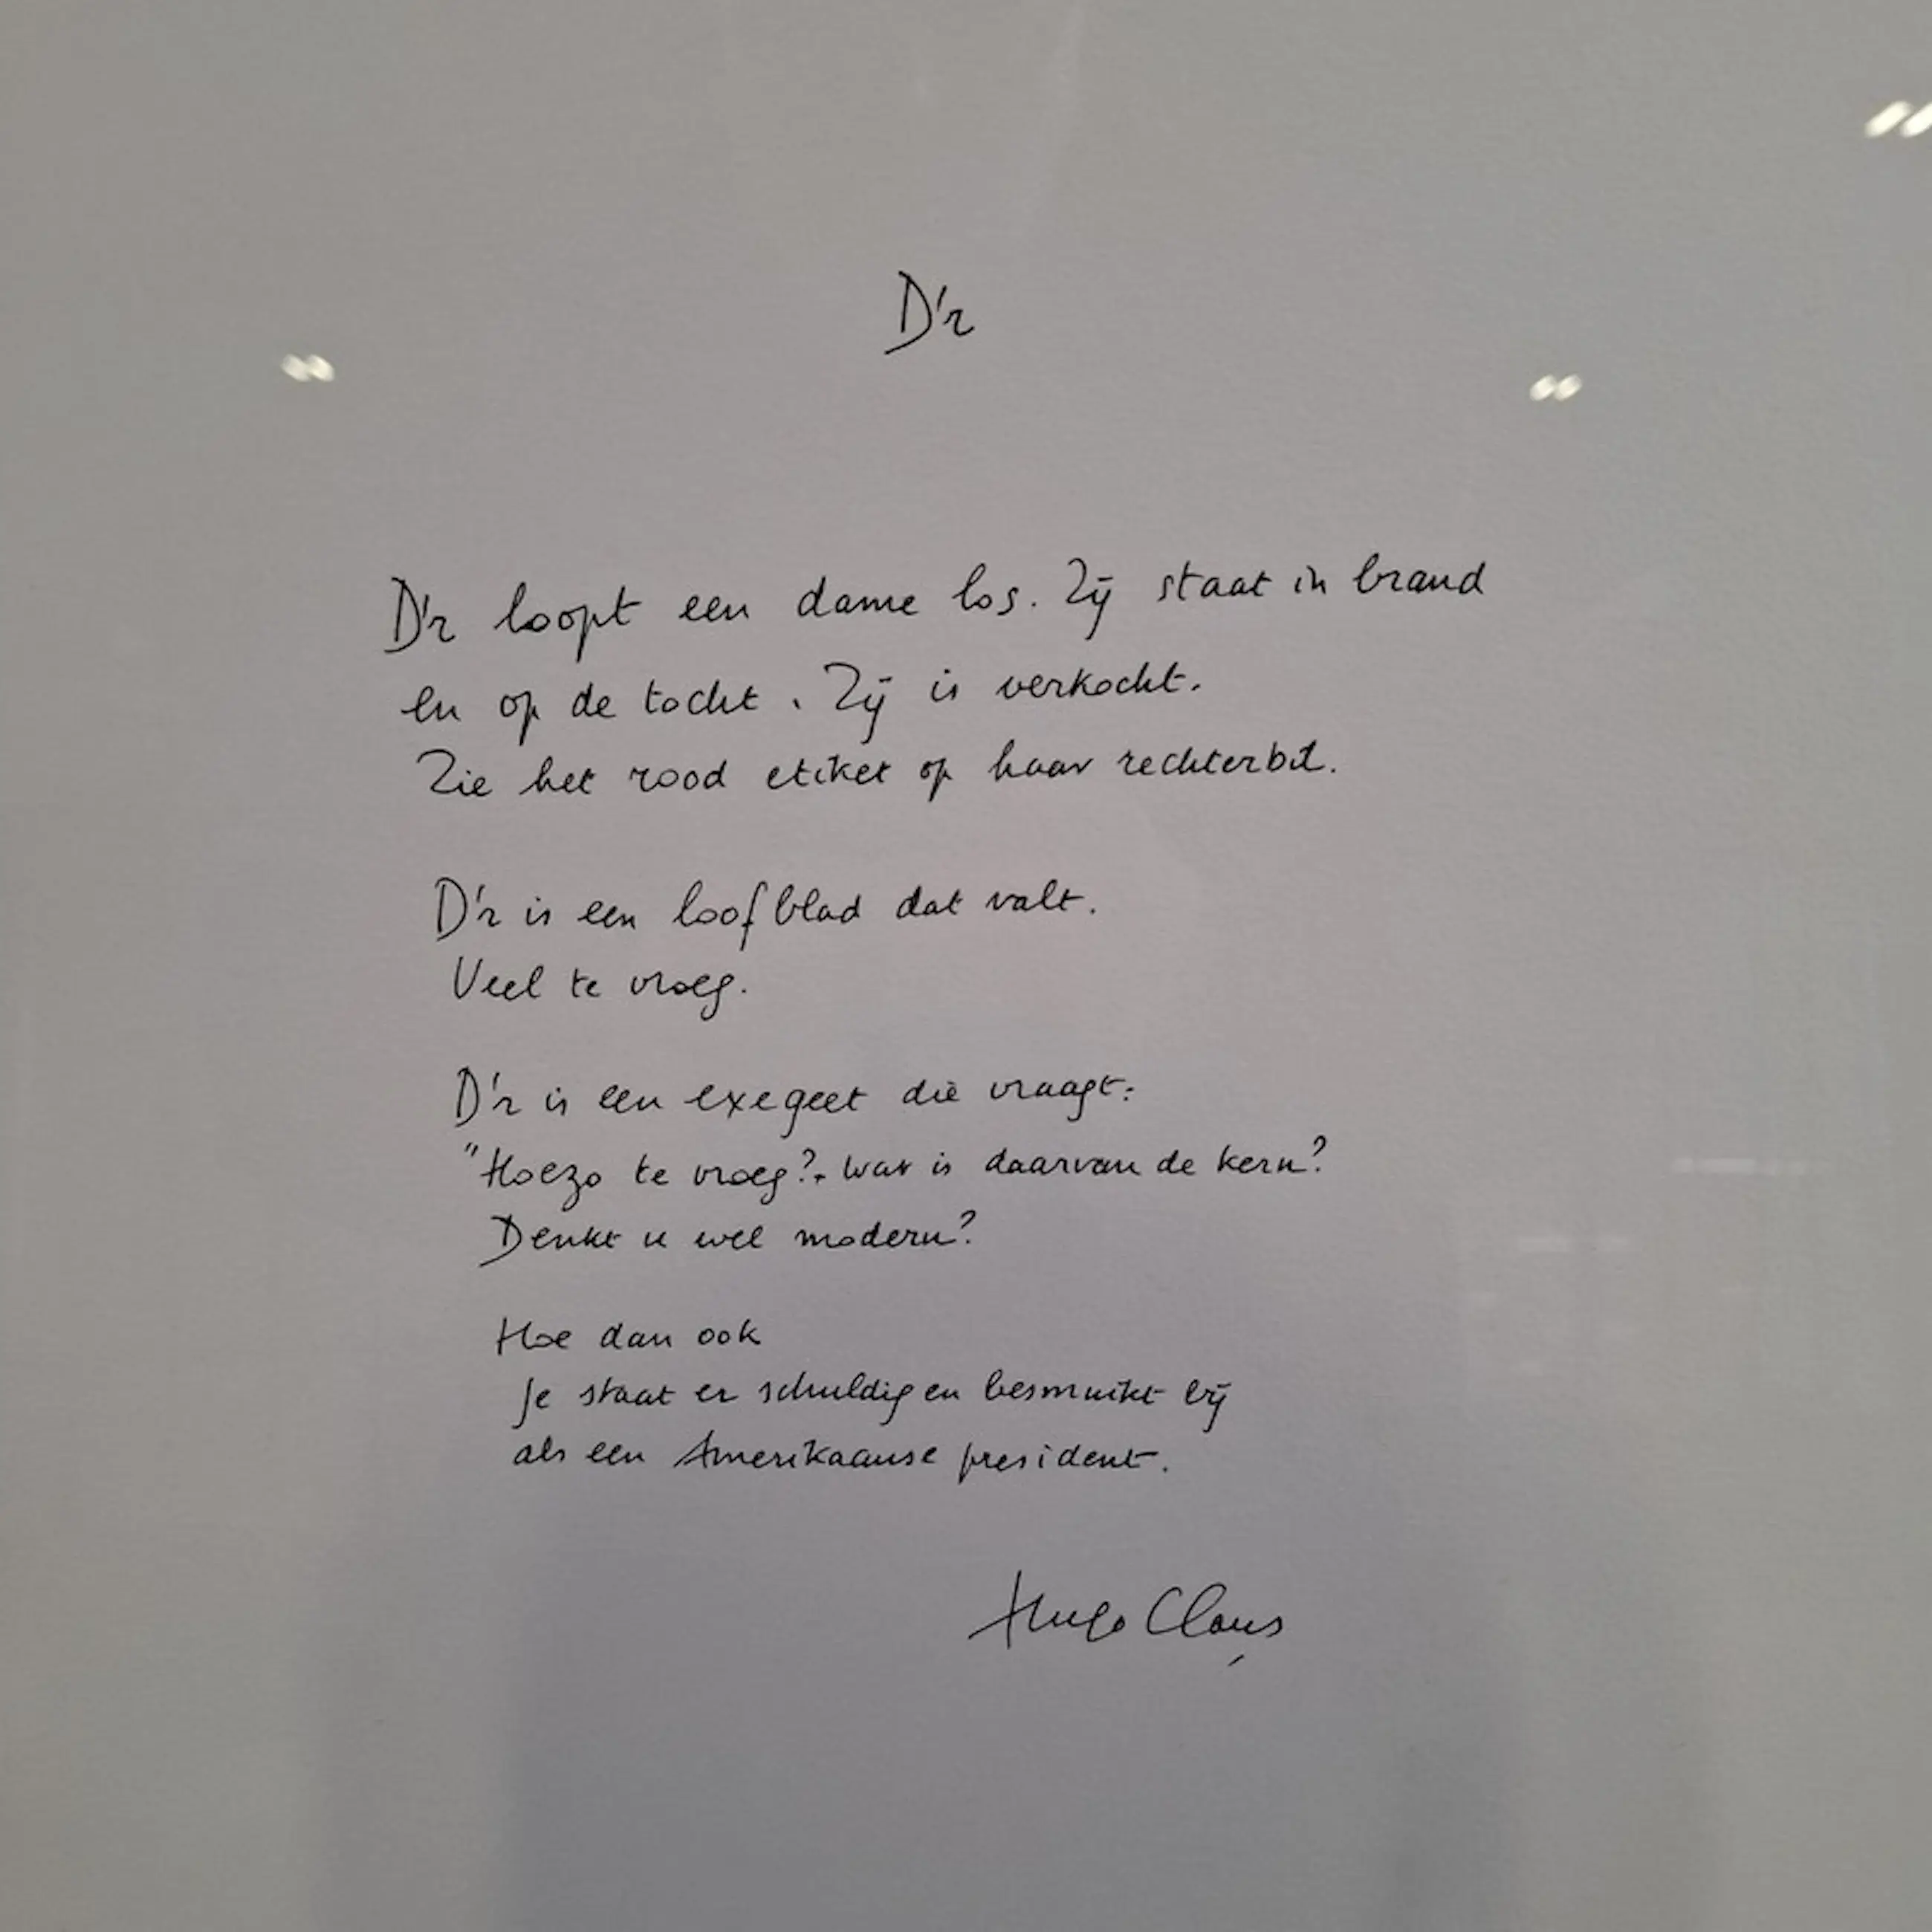 D'r
D'r loopt een dame los. Zij staat in brand
en op de tocht. Zij is verkocht.
Zie het rood etiket op haar rechterbil.
D'r is een loofblad dat valt.
Veel te vroeg.
D'r is een exegeet die vraagt:
"Hoezo te vroeg?. Wat is daarvan de kern?
Denkt u wel modern?
Hoe dan ook
Je staat er schuldig en besmuikt bij
als een Amerikaanse president.
Hugo Claus